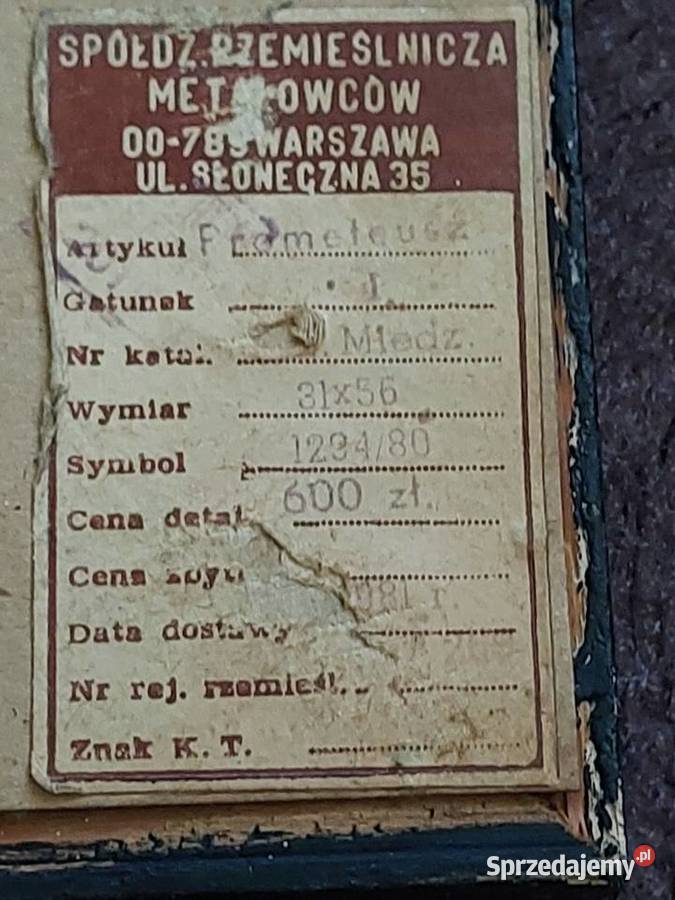 SPÓŁDZ. RZEMIEŚLNICZA
METALOWCÓW
00-789 WARSZAWA
UL. SŁONECZNA 35
Artykuł Prometeusz
Gatunek I
Nr katal. Miedz.
Wymiar 31x56
Symbol 1294/80
Cena detal. 600 zł.
Cena zbytu
Data dostawy 1981 r.
Nr rej. rzemieśl.
Znak K. T.
Sprzedajemy.pl